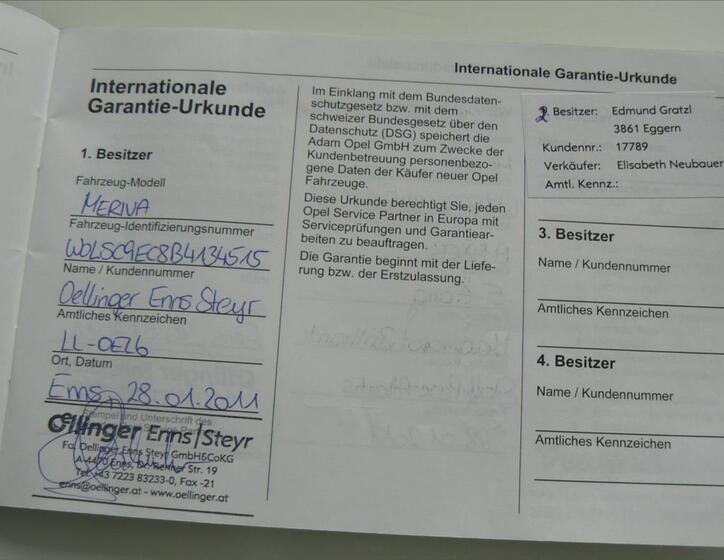 Internationale Garantie-Urkunde
Internationale
Garantie-Urkunde
1. Besitzer
Fahrzeug-Modell
MERIVA
Fahrzeug-Identifizierungsnummer
W0LSC9EC8B4134515
Name / Kundennummer
Oellinger Enns Steyr
Amtliches Kennzeichen
LL-OE26
Ort, Datum
Enns, 28.01.2011
Stempel und Unterschrift des
Oellinger Enns|Steyr
Fa. Oellinger Enns Steyr GmbH&CoKG
A-4470 Enns, Dr. Renner Str. 19
Tel. +43 7223 83233-0, Fax -21
enns@oellinger.at - www.oellinger.at
Im Einklang mit dem Bundesdaten-
schutzgesetz bzw. mit dem
schweizer Bundesgesetz über den
Datenschutz (DSG) speichert die
Adam Opel GmbH zum Zwecke der
Kundenbetreuung personenbezo-
gene Daten der Käufer neuer Opel
Fahrzeuge.
Diese Urkunde berechtigt Sie, jeden
Opel Service Partner in Europa mit
Serviceprüfungen und Garantiear-
beiten zu beauftragen.
Die Garantie beginnt mit der Liefe-
rung bzw. der Erstzulassung.
2. Besitzer: Edmund Gratzl
3861 Eggern
Kundennr.: 17789
Verkäufer: Elisabeth Neubauer
Amtl. Kennz.:
3. Besitzer
Name / Kundennummer
Amtliches Kennzeichen
4. Besitzer
Name / Kundennummer
Amtliches Kennzeichen